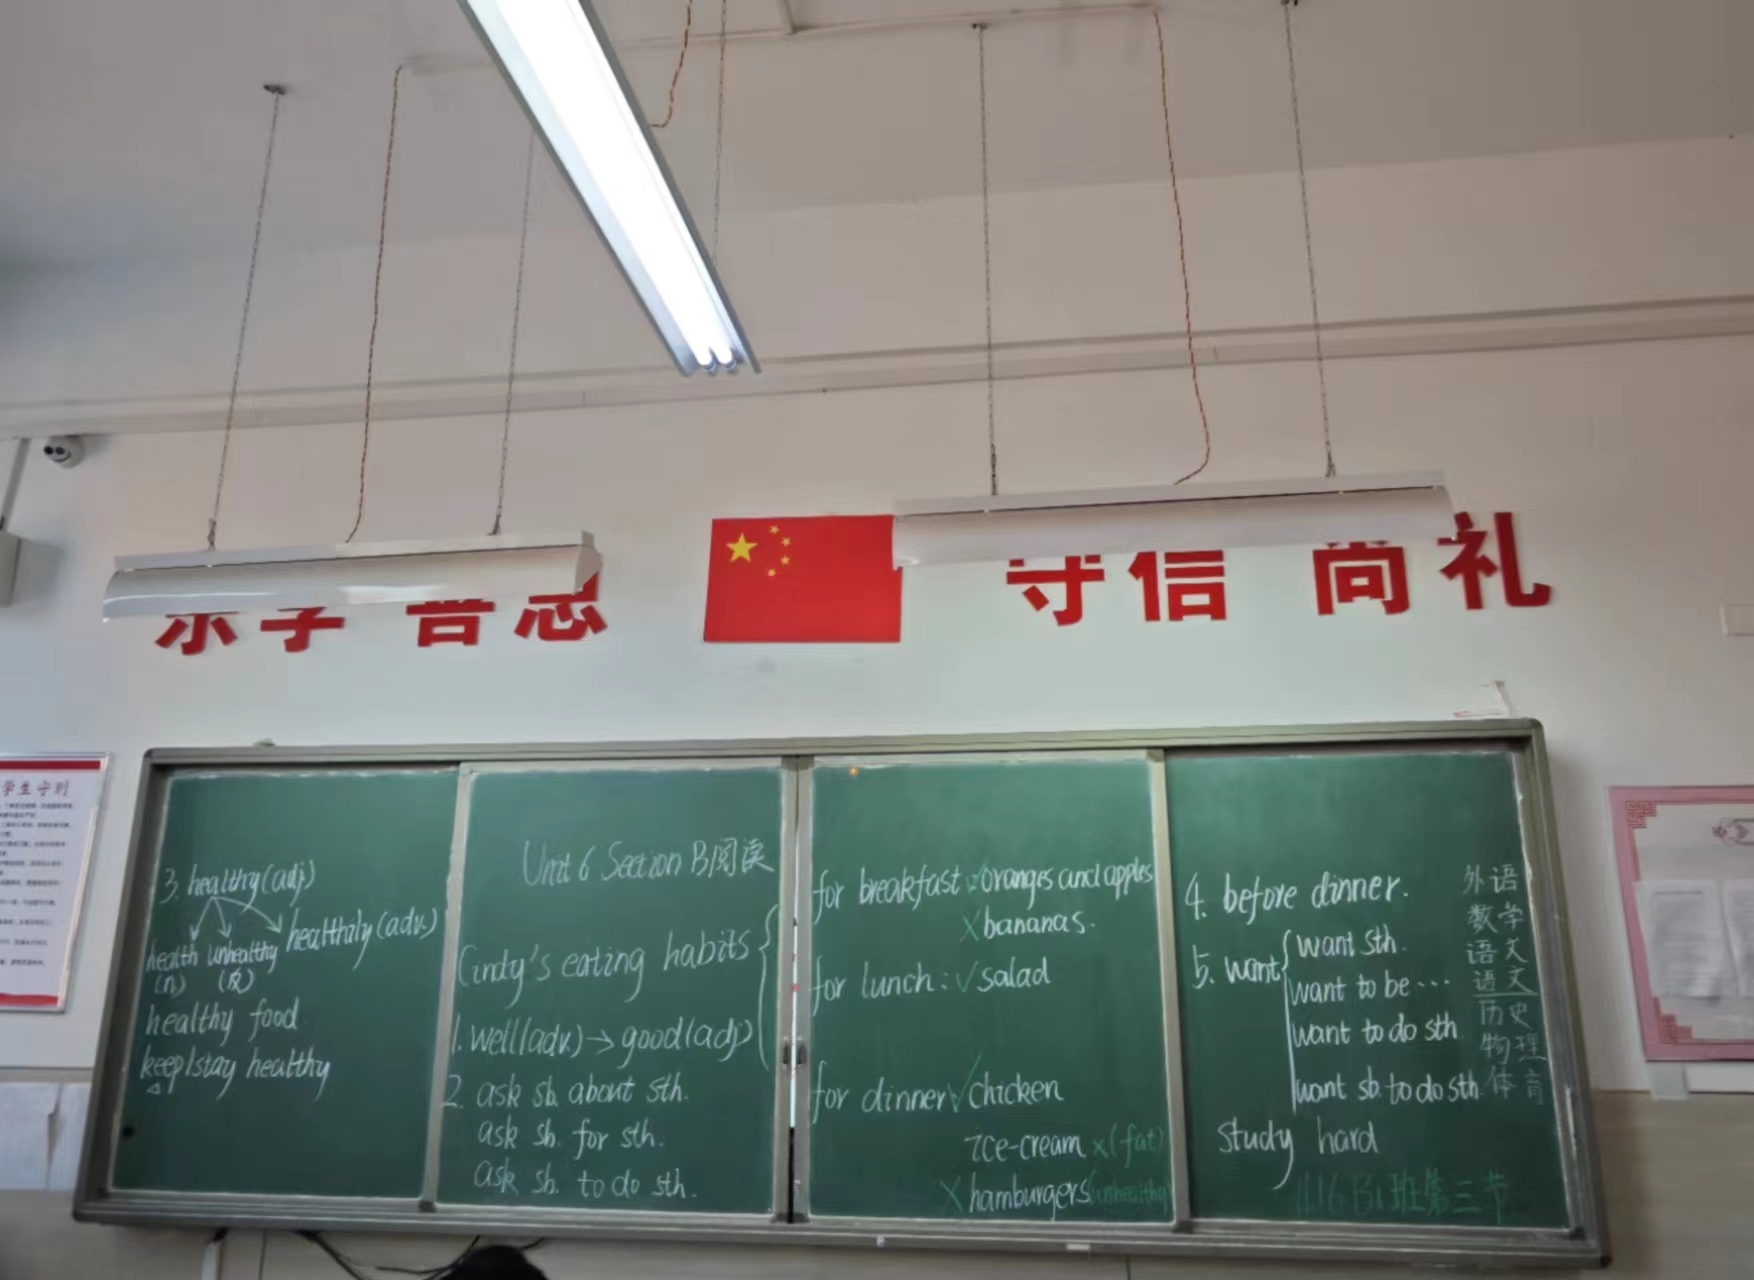 守信 尚礼
学生守则
3. healthy(adj)
health unhealthy healthily(adv.)
(n) (反)
healthy food
keep/stay healthy
Unit 6 Section B阅读
Cindy's eating habits
1. well(adv.)→good(adj)
2. ask sb. about sth.
ask sb. for sth.
ask sb. to do sth.
for breakfast √oranges and apples
×bananas.
for lunch: √salad
for dinner √chicken
ice-cream ×(fat)
×hamburgers(unhealthy)
4. before dinner.
5. want
want sth.
want to be…
want to do sth
want sb. to do sth.
study hard
外语
数学
语文
语文
历史
物理
体育
班第三节